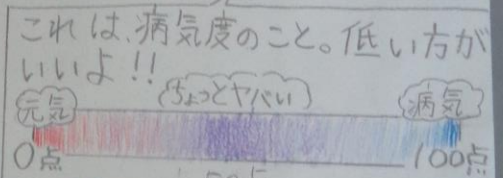 これは、病気度のこと。低い方が
いいよ!!
元気 ちょっとヤバい 病気
0点 100点